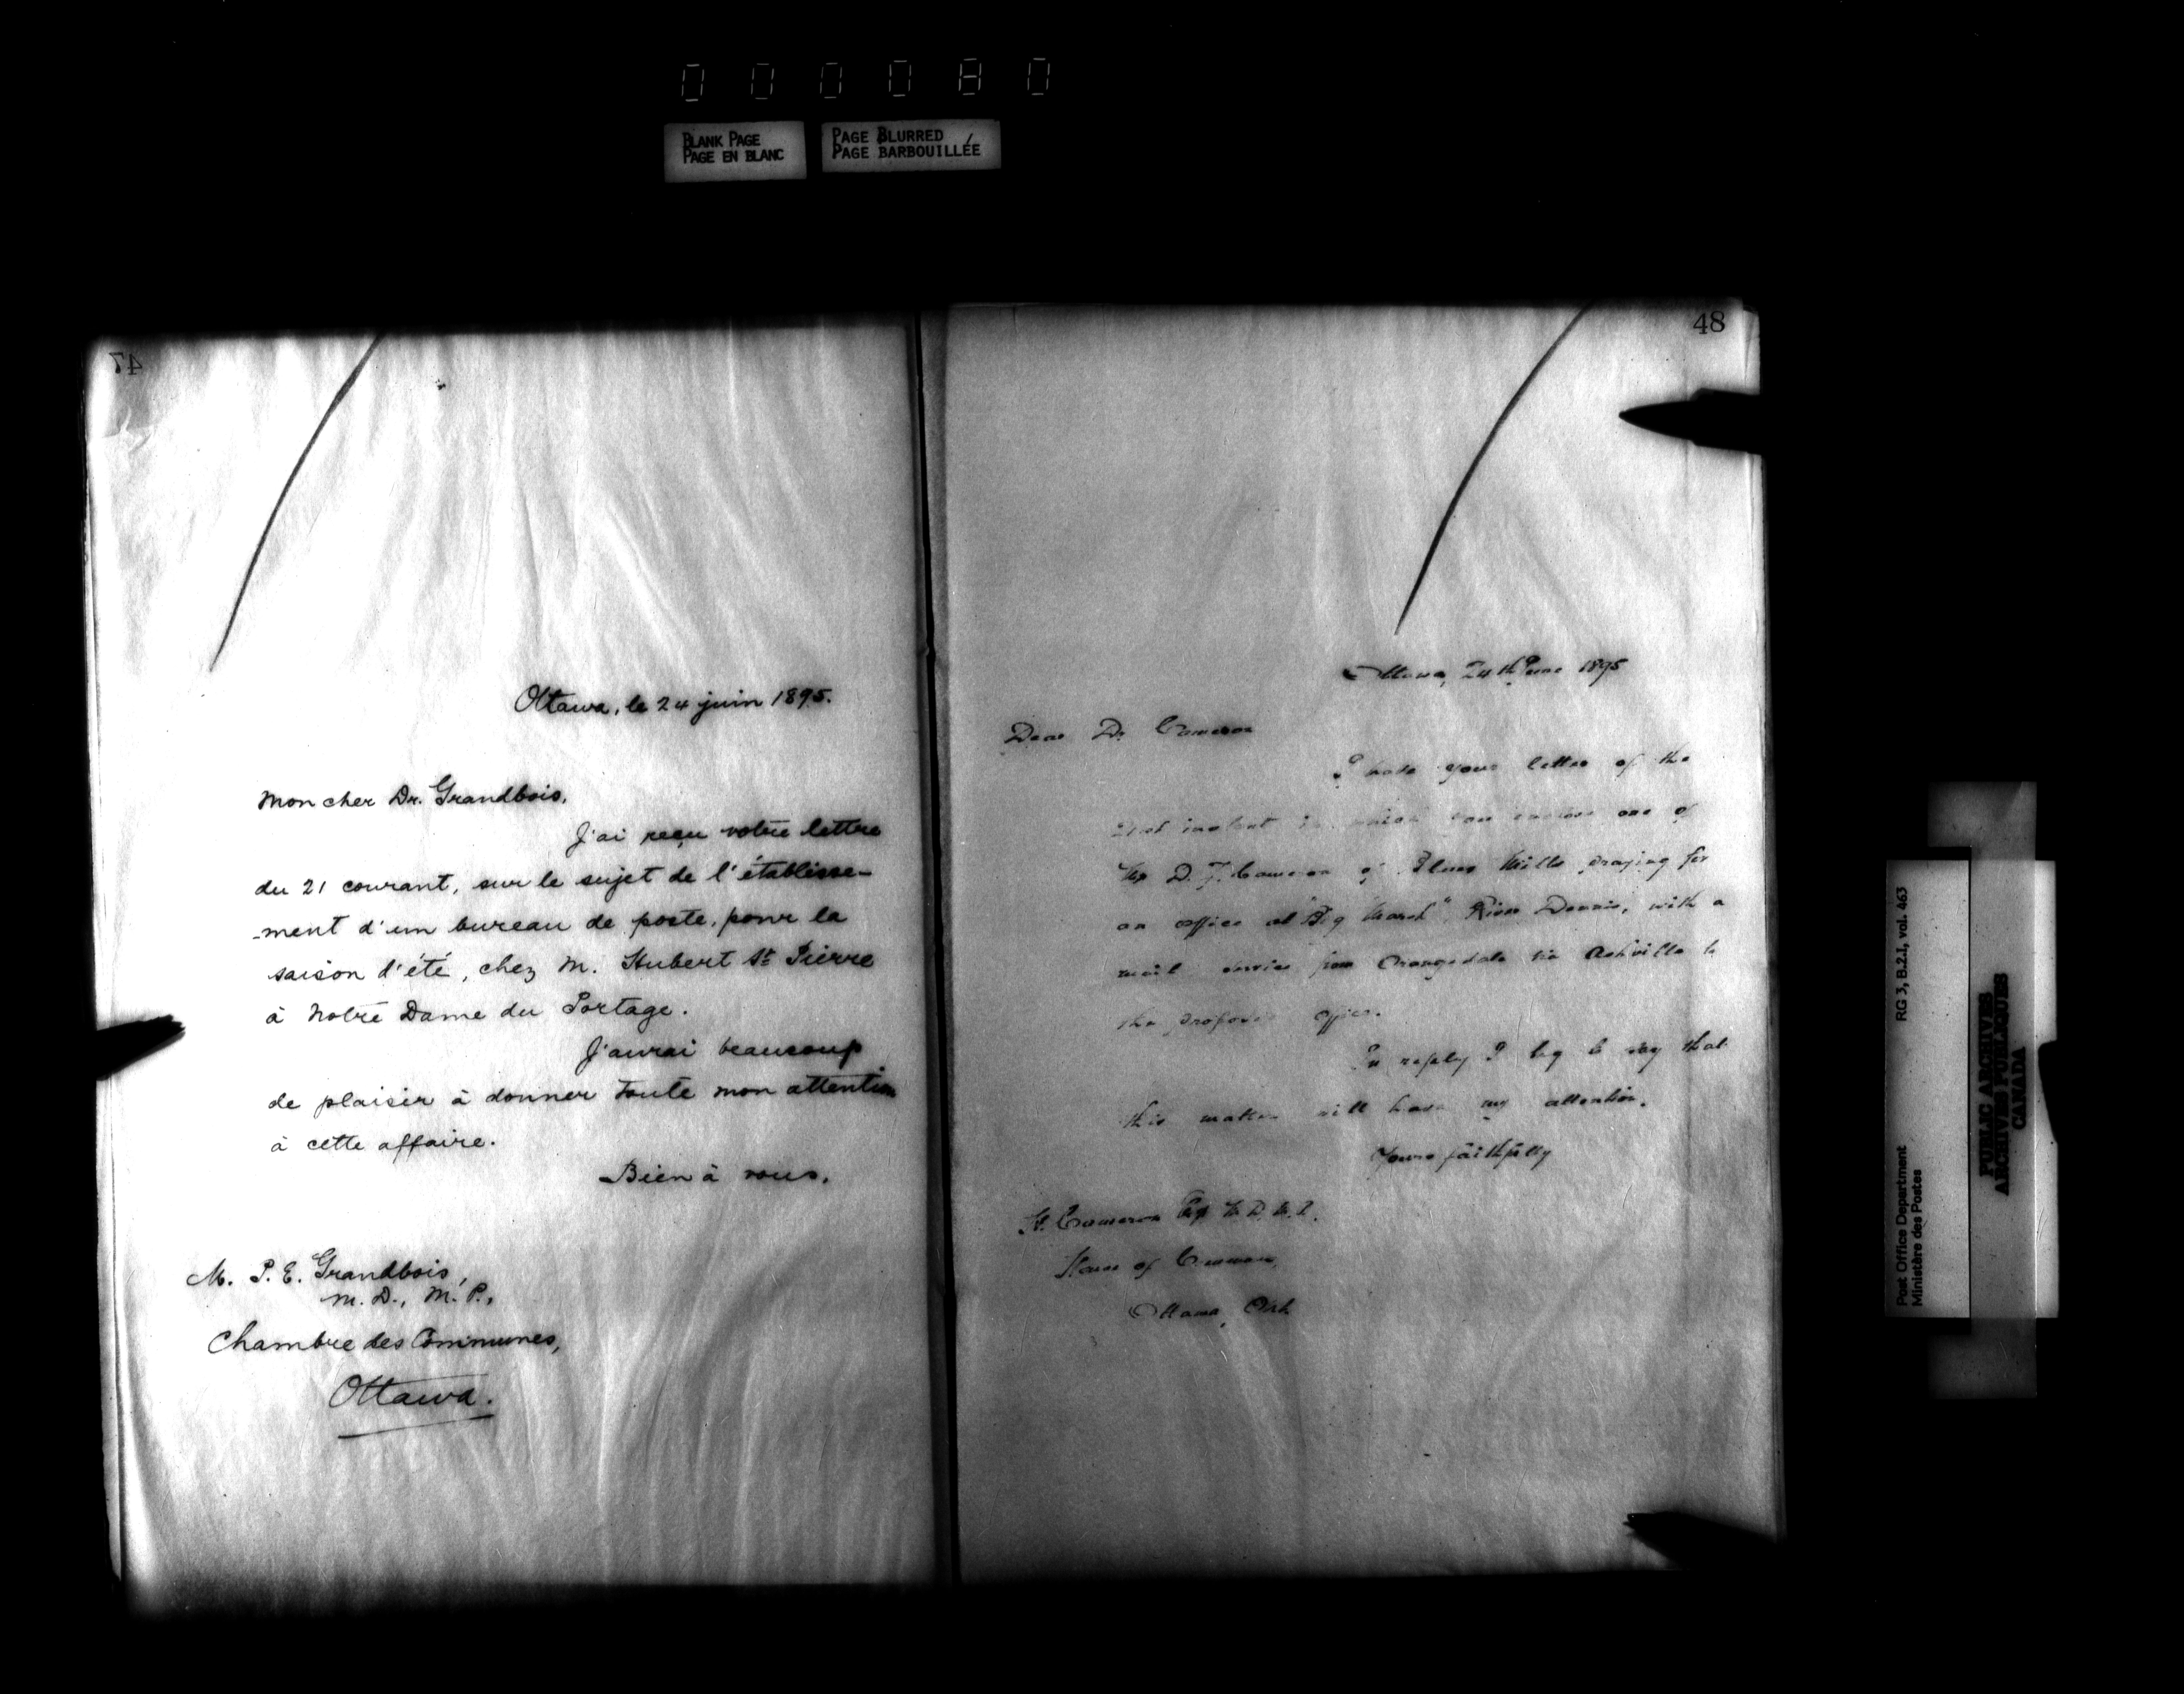 000080
BLANK PAGE
PAGE EN BLANC
PAGE BLURRED
PAGE BARBOUILLÉE
47
Ottawa, le 24 juin 1895.
Mon cher Dr. Grandbois,
J'ai reçu votre lettre
du 21 courant, sur le sujet de l'établisse-
-ment d'un bureau de poste, pour la
saison d'été, chez M. Hubert St Pierre
à Notre Dame du Portage.
J'aurai beaucoup
de plaisir à donner toute mon attention
à cette affaire.
Bien à vous,
M. P. E. Grandbois,
M. D., M. P.,
Chambre des Communes,
Ottawa.
48
Ottawa, 24th June 1895
Dear Dr Cameron
I have your letter of the
21st instant in which you enclose one of
D. F. Cameron of Mills praying for
an office at "Big Marsh", River Dennis, with a
mail service from Orangedale via Ashville to
the proposed office.
In reply I beg to say that
this matter will have my attention.
Yours faithfully
H. Cameron Esq M.D. M.P.
House of Commons,
Ottawa, Ont
RG 3, B.2.1, vol. 463
Post Office Department
Ministère des Postes
PUBLIC ARCHIVES
ARCHIVES PUBLIQUES
CANADA